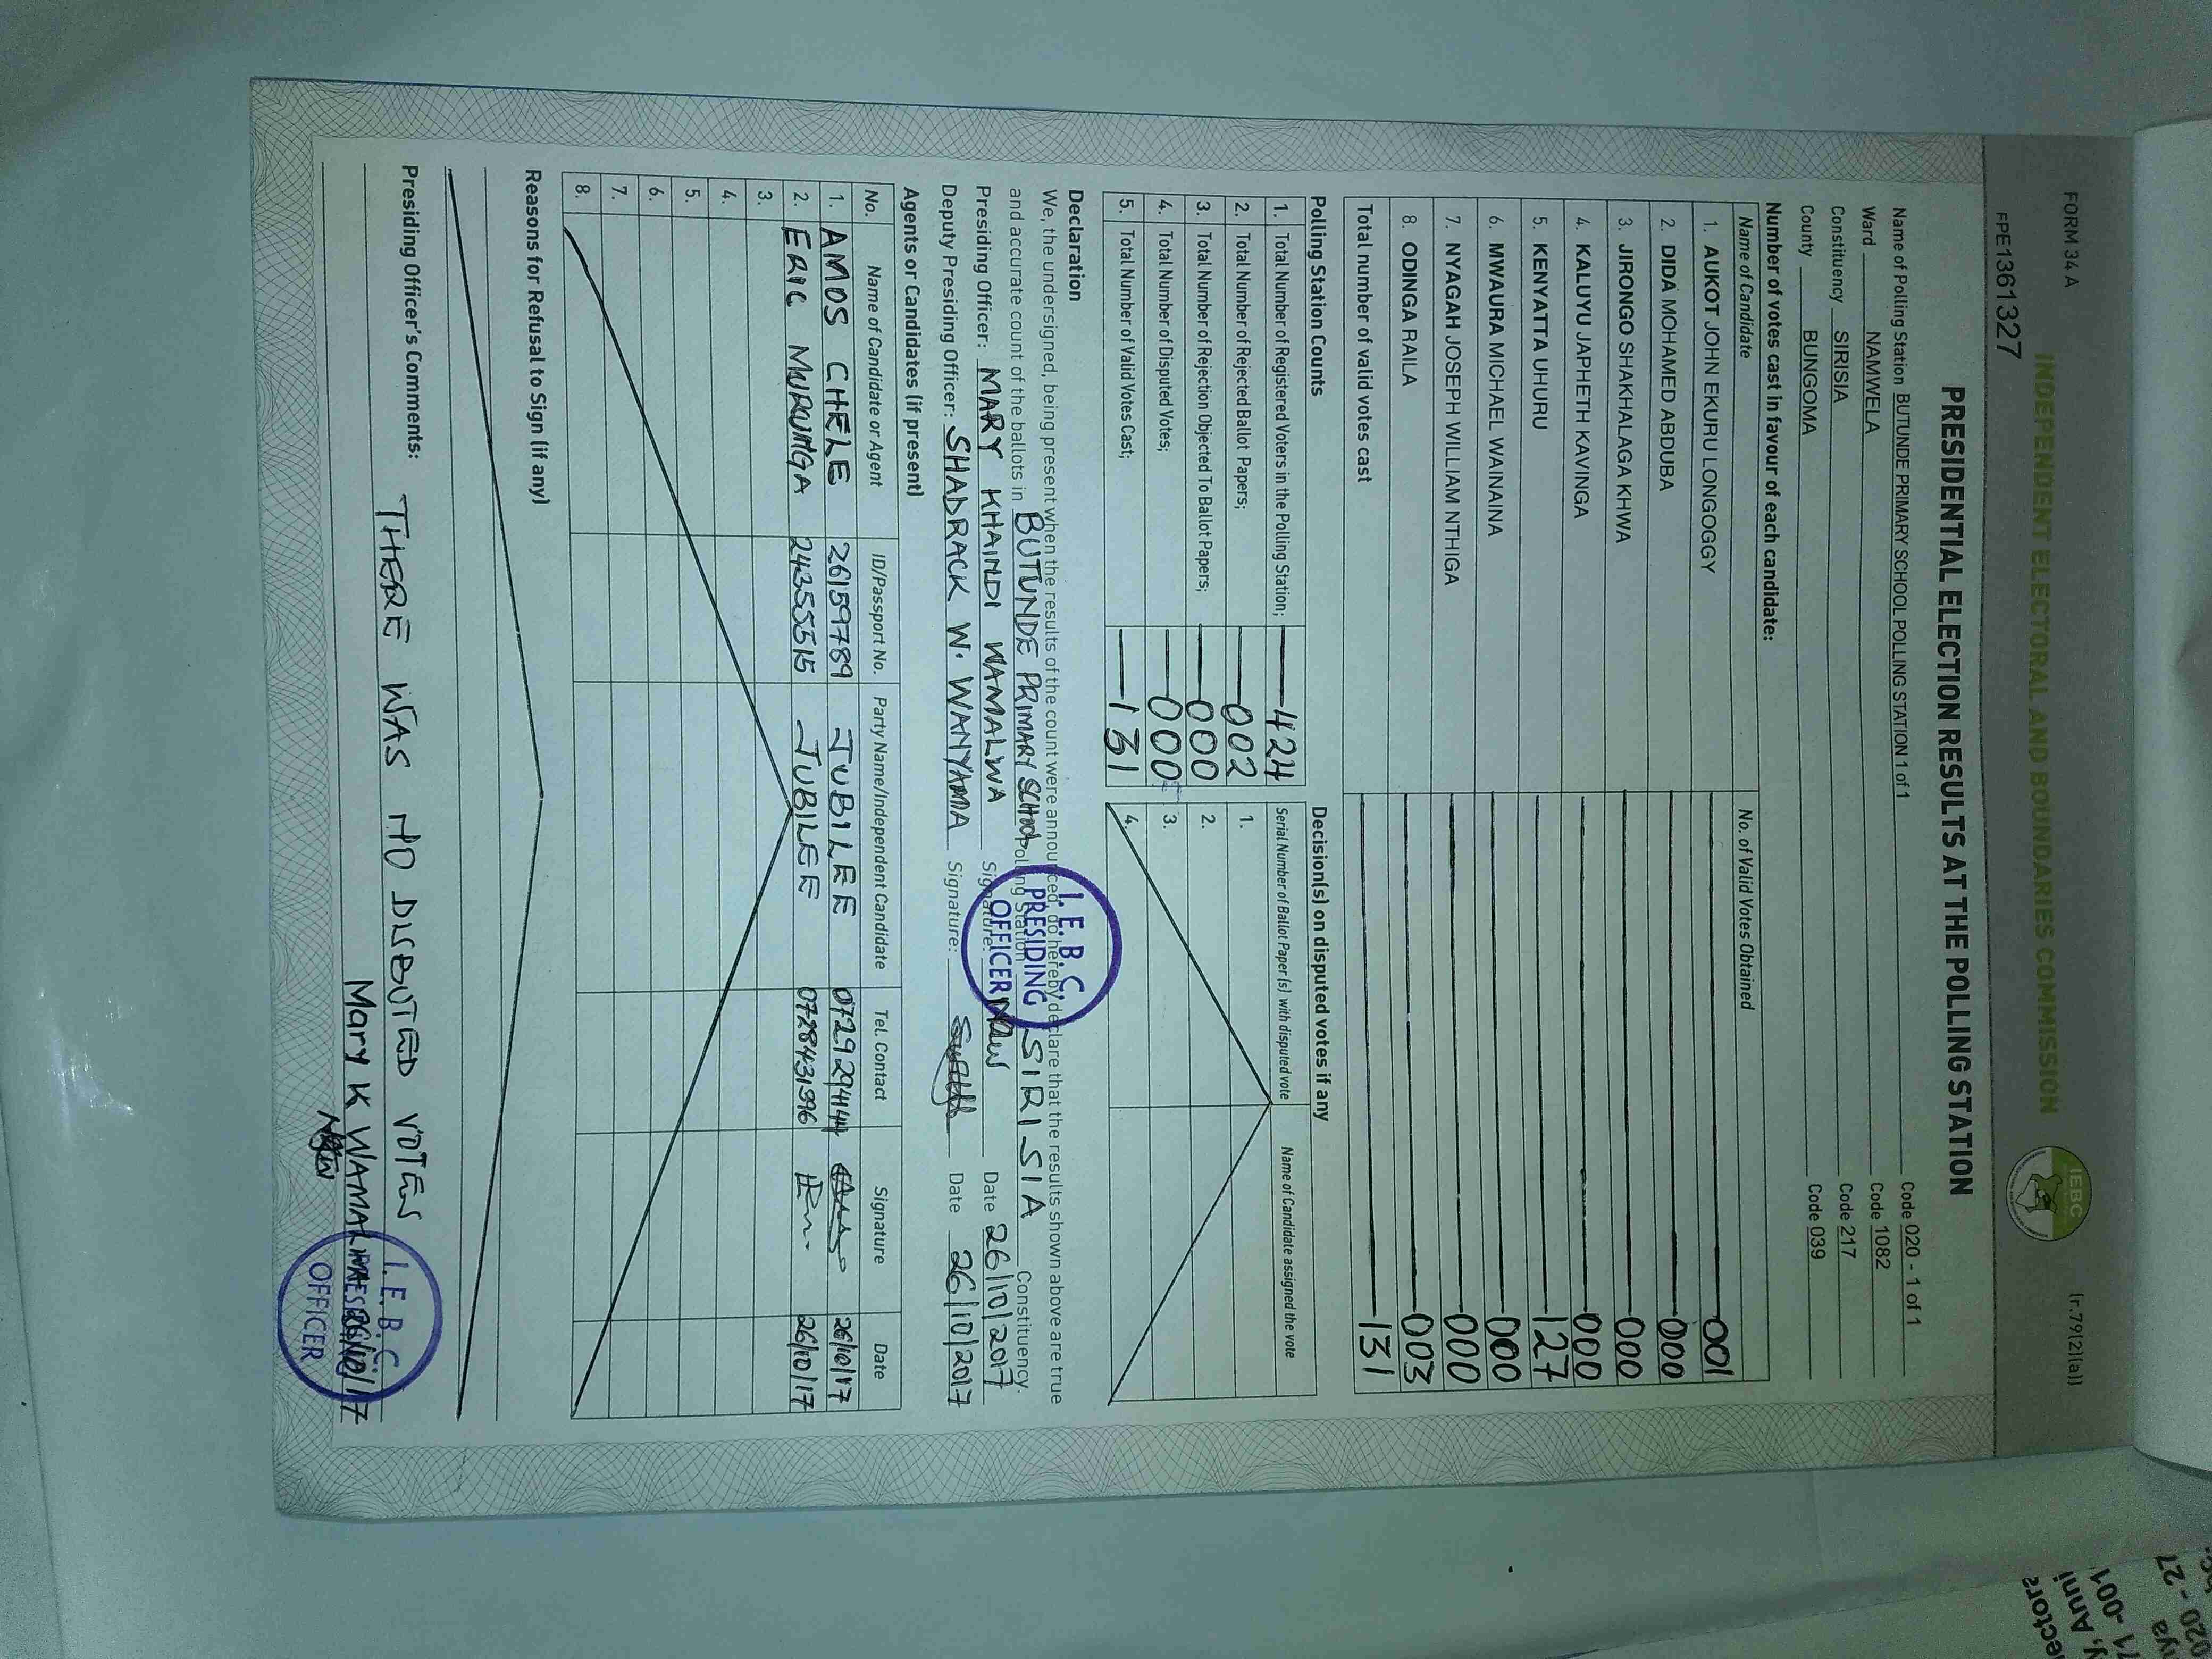 FORM 34 A
(r.79(2)(a))
INDEPENDENT ELECTORAL AND BOUNDARIES COMMISSION
IEBC
FPE1361327
PRESIDENTIAL ELECTION RESULTS AT THE POLLING STATION
Name of Polling Station BUTUNDE PRIMARY SCHOOL POLLING STATION 1 of 1 Code 020 - 1 of 1
Ward NAMWELA Code 1082
Constituency SIRISIA Code 217
County BUNGOMA Code 039
Number of votes cast in favour of each candidate:
Name of Candidate No. of Valid Votes Obtained
1. AUKOT JOHN EKURU LONGOGGY 001
2. DIDA MOHAMED ABDUBA 000
3. JIRONGO SHAKHALAGA KHWA 000
4. KALUYU JAPHETH KAVINGA 000
5. KENYATTA UHURU 127
6. MWAURA MICHAEL WAINAINA 000
7. NYAGAH JOSEPH WILLIAM NTHIGA 000
8. ODINGA RAILA 003
Total number of valid votes cast 131
Polling Station Counts
1. Total Number of Registered Voters in the Polling Station; 424
2. Total Number of Rejected Ballot Papers; 002
3. Total Number of Rejection Objected To Ballot Papers; 000
4. Total Number of Disputed Votes; 000
5. Total Number of Valid Votes Cast; 131
Decision(s) on disputed votes if any
Serial Number of Ballot Paper(s) with disputed vote Name of Candidate assigned the vote
1.
2.
3.
4.
Declaration
We, the undersigned, being present when the results of the count were announced, do hereby declare that the results shown above are true
and accurate count of the ballots in BUTUNDE PRIMARY SCHOOL Polling Station SIRISIA Constituency.
Presiding Officer: MARY KHAINDI WAMALWA Signature: Date 26/10/2017
Deputy Presiding Officer: SHADRACK W. WANYAMA Signature: Date 26/10/2017
I.E.B.C.
PRESIDING
OFFICER
Agents or Candidates (if present)
No. Name of Candidate or Agent ID/Passport No. Party Name/Independent Candidate Tel. Contact Signature Date
1. AMOS CHELE 26159789 JUBILEE 26/10/17
2. ERIC MURUNGA 24355515 JUBILEE 0728431396 26/10/17
3.
4.
5.
6.
7.
8.
Reasons for Refusal to Sign (if any)
Presiding Officer's Comments: THERE WAS NO DISBUTED VOTES
Mary K WAMALWA 26/10/17
I.E.B.C.
OFFICER